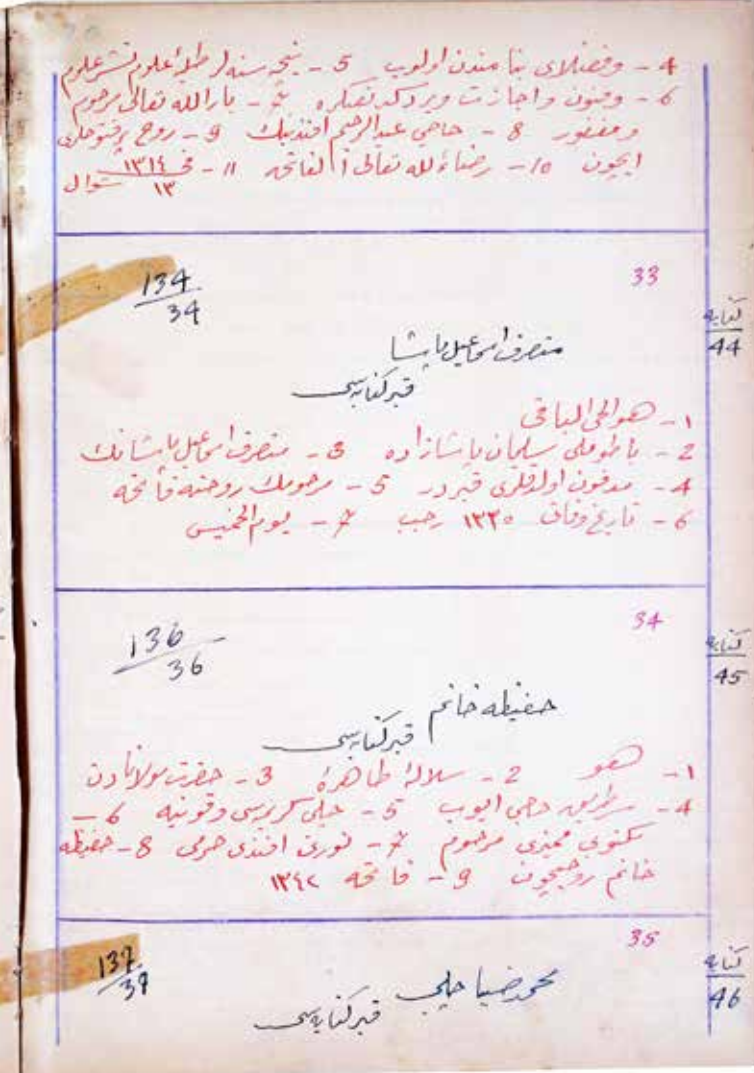 4 - وفضلای بنا مندن اولوب 5 - نیجه سنه لر طلابه علوم نشر علوم
6 - وفنون و اجازت ویردکدنصکره 7 - بارالله تعالی مرحوم
ومغفور 8 - حاجی عبدالرحیم افندینك 9 - روح پرفتوحلری
ایچون 10 - رضاءً لله تعالی الفاتحه 11 - فی ١٣١٤ ١٣ شوال
33
134
34
كتابه
44
متصرف اسماعیل پاشا
قبر كتابه سی
١ - هو الحی الباقی
2 - باطوملی سلمان پاشازاده 3 - متصرف اسماعیل پاشانك
4 - مدفون اولدقلری قبردر 5 - مرحومك روحنه فاتحه
6 - تاریخ وفاتی ١٣٣٠ رجب 7 - یوم الخمیس
34
136
36
كتابه
45
حفیظه خانم
قبر كتابه سی
١ - هو 2 - سلالۀ طاهرۀ 3 - حضرت مولانادن
4 - طریق حجی ایوب 5 - چلبی كریمه سی وقونیه 6 -
مكتوبی ممیزی مرحوم 7 - نوری افندی حرمی 8 - حفیظه
خانم روحیچون 9 - فاتحه ١٣٤٢
35
137
37
كتابه
46
محمد ضیا چلبی
قبر كتابه سی